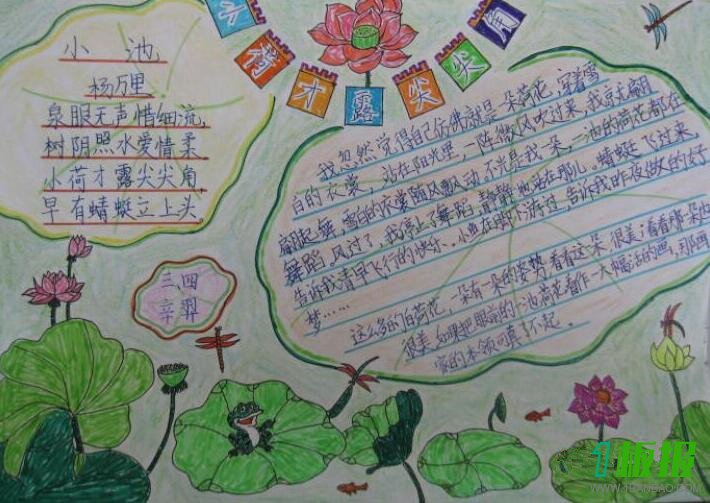 小荷才露尖尖角
小池
杨万里
泉眼无声惜细流,
树阴照水爱情柔,
小荷才露尖尖角,
早有蜻蜓立上头。
三、四
辛羿
我忽然觉得自己仿佛就是一朵荷花,穿着雪
白的衣裳,站在阳光里,一阵微风吹过来,我就翩
翩起舞,雪白的衣裳随风飘动。不光是我一朵,一池的荷花都在
舞蹈。风过了,我停止了舞蹈,静静地站在那儿。蜻蜓飞过来,
告诉我清早飞行的快乐。小鱼在脚下游过,告诉我昨夜做的好
梦……
这么多的白荷花,一朵有一朵的姿势。看看这朵,很美;看看那朵,也
很美。如果把眼前的一池荷花看作一大幅活的画,那画
家的本领可真了不起。
1板报
WWW.1BANBAO.COM